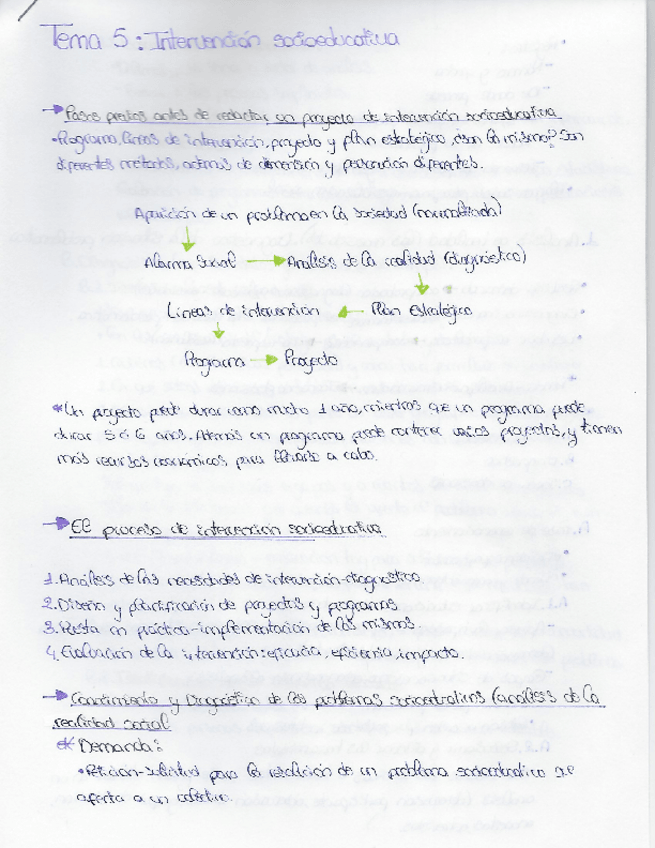 Tema 5: Intervención socioeducativa
Pasos previos antes de redactar un proyecto de intervención socioeducativa
•Programa, líneas de intervención, proyecto y plan estratégico ¿son lo mismo? Son
diferentes métodos, además de dimensión y duración diferentes.
Aparición de un problema en la sociedad (normalizada)
Alarma Social → Análisis de la realidad (diagnóstico)
Líneas de intervención ← Plan Estratégico
Programa → Proyecto
*Un proyecto puede durar como mucho 1 año, mientras que un programa puede
durar 5 ó 6 años. Además un programa puede contener varios proyectos, y tienen
más recursos económicos para llevarse a cabo.
El proceso de intervención socioeducativa
1. Análisis de las necesidades de intervención-diagnóstico
2. Diseño y planificación de proyectos y programas
3. Puesta en práctica-implementación de los mismos.
4. Evaluación de la intervención: eficacia, eficiencia, impacto.
Conocimiento y Diagnóstico de los problemas socioeducativos (análisis de la
realidad social
* Demanda:
•Petición-solicitud para la resolución de un problema socioeducativo que
afecta a un colectivo.